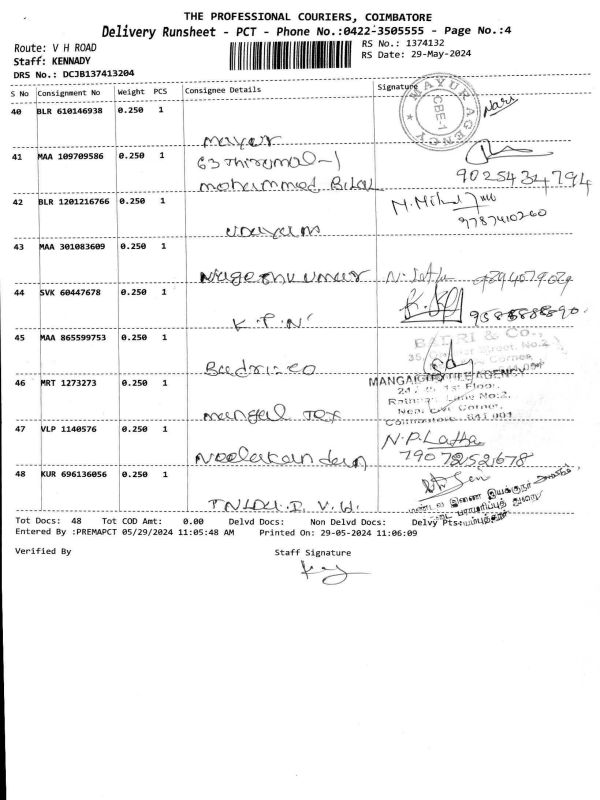 THE PROFESSIONAL COURIERS, COIMBATORE
Delivery Runsheet - PCT - Phone No.:0422-3505555 - Page No.:4
Route: V H ROAD
RS No.: 1374132
Staff: KENNADY
RS Date: 29-May-2024
DRS No.: DCJB137413204
S No Consignment No Weight PCS Consignee Details Signature
40 BLR 610146938 0.250 1
MAYUR AGENCY
CBE-1
Mayur
41 MAA 109709586 0.250 1
63 Thirumal-1
Mohammed Bilal
9025434794
42 BLR 1201216766 0.250 1
9787410260
43 MAA 301083609 0.250 1
Nageshkumar N. Latha
44 SVK 60447678 0.250 1
K.P.N.
45 MAA 865599753 0.250 1
BADRI & Co.,
Badri & co
46 MRT 1273273 0.250 1
Near Corner,
Coimbatore - 641 001
Mangal Tex
47 VLP 1140576 0.250 1
N.P. Latha
Neelakandan
48 KUR 696136056 0.250 1
Tot Docs: 48 Tot COD Amt: 0.00 Delvd Docs: Non Delvd Docs: Delvy Pts:
Entered By :PREMAPCT 05/29/2024 11:05:48 AM Printed On: 29-05-2024 11:06:09
Verified By Staff Signature